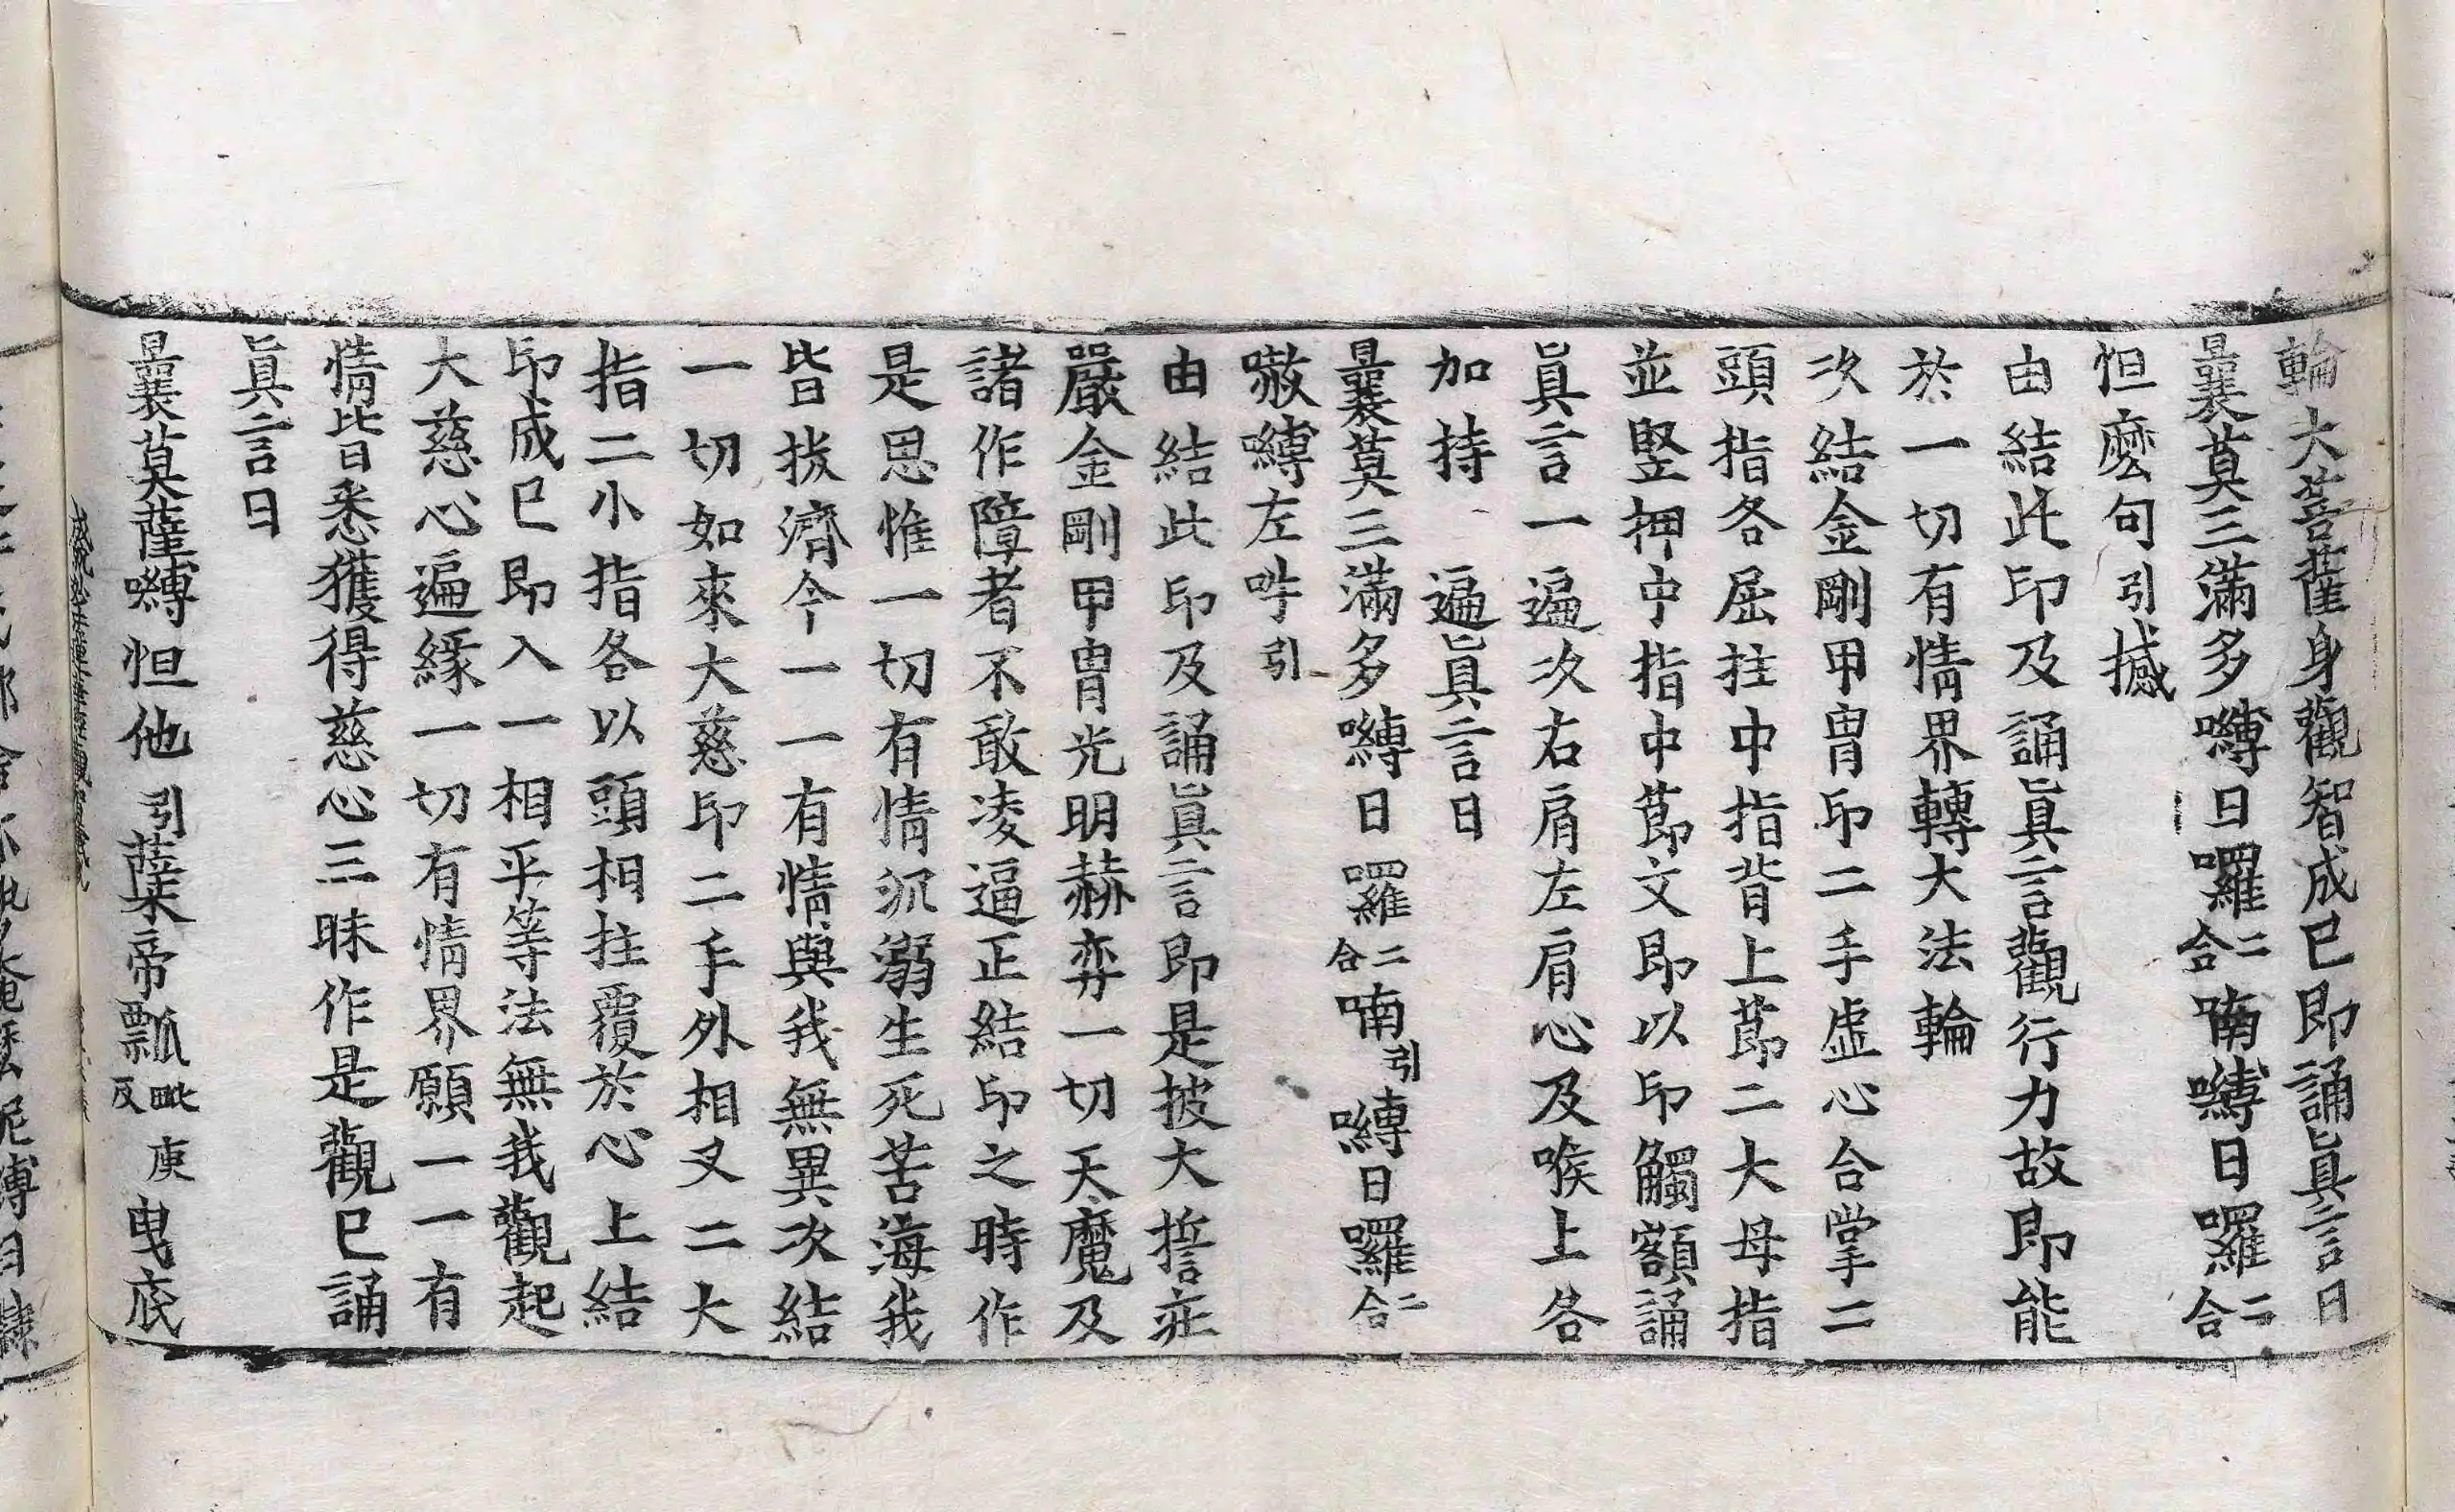 輪大菩薩身觀智成已即誦眞言曰
曩莫三滿多嚩日囉二合喃嚩日囉二合
怛麽句引撼
由結此印及誦眞言觀行力故即能
於一切有情界轉大法輪
次結金剛甲冑印二手虛心合掌二
頭指各屈拄中指背上莭二大母指
並竪押中指中莭文即以印觸額誦
眞言一遍次右肩左肩心及喉上各
加持 遍眞言曰
曩莫三滿多嚩日囉二合喃引嚩日囉二合
㘕嚩左吽引
由結此印及誦眞言即是披大誓庄
嚴金剛甲冑光明赫弈一切天魔及
諸作障者不敢凌逼正結印之時作
是思惟一切有情沉溺生死苦海我
皆拔濟今一一有情與我無異次結
一切如來大慈印二手外相叉二大
指二小指各以頭相拄覆於心上結
印成已即入一相平等法無我觀起
大慈心遍緣一切有情界願一一有
情皆悉獲得慈心三昧作是觀已誦
眞言曰
曩莫薩嚩怛他引蘖帝瓢毗庾反曳底